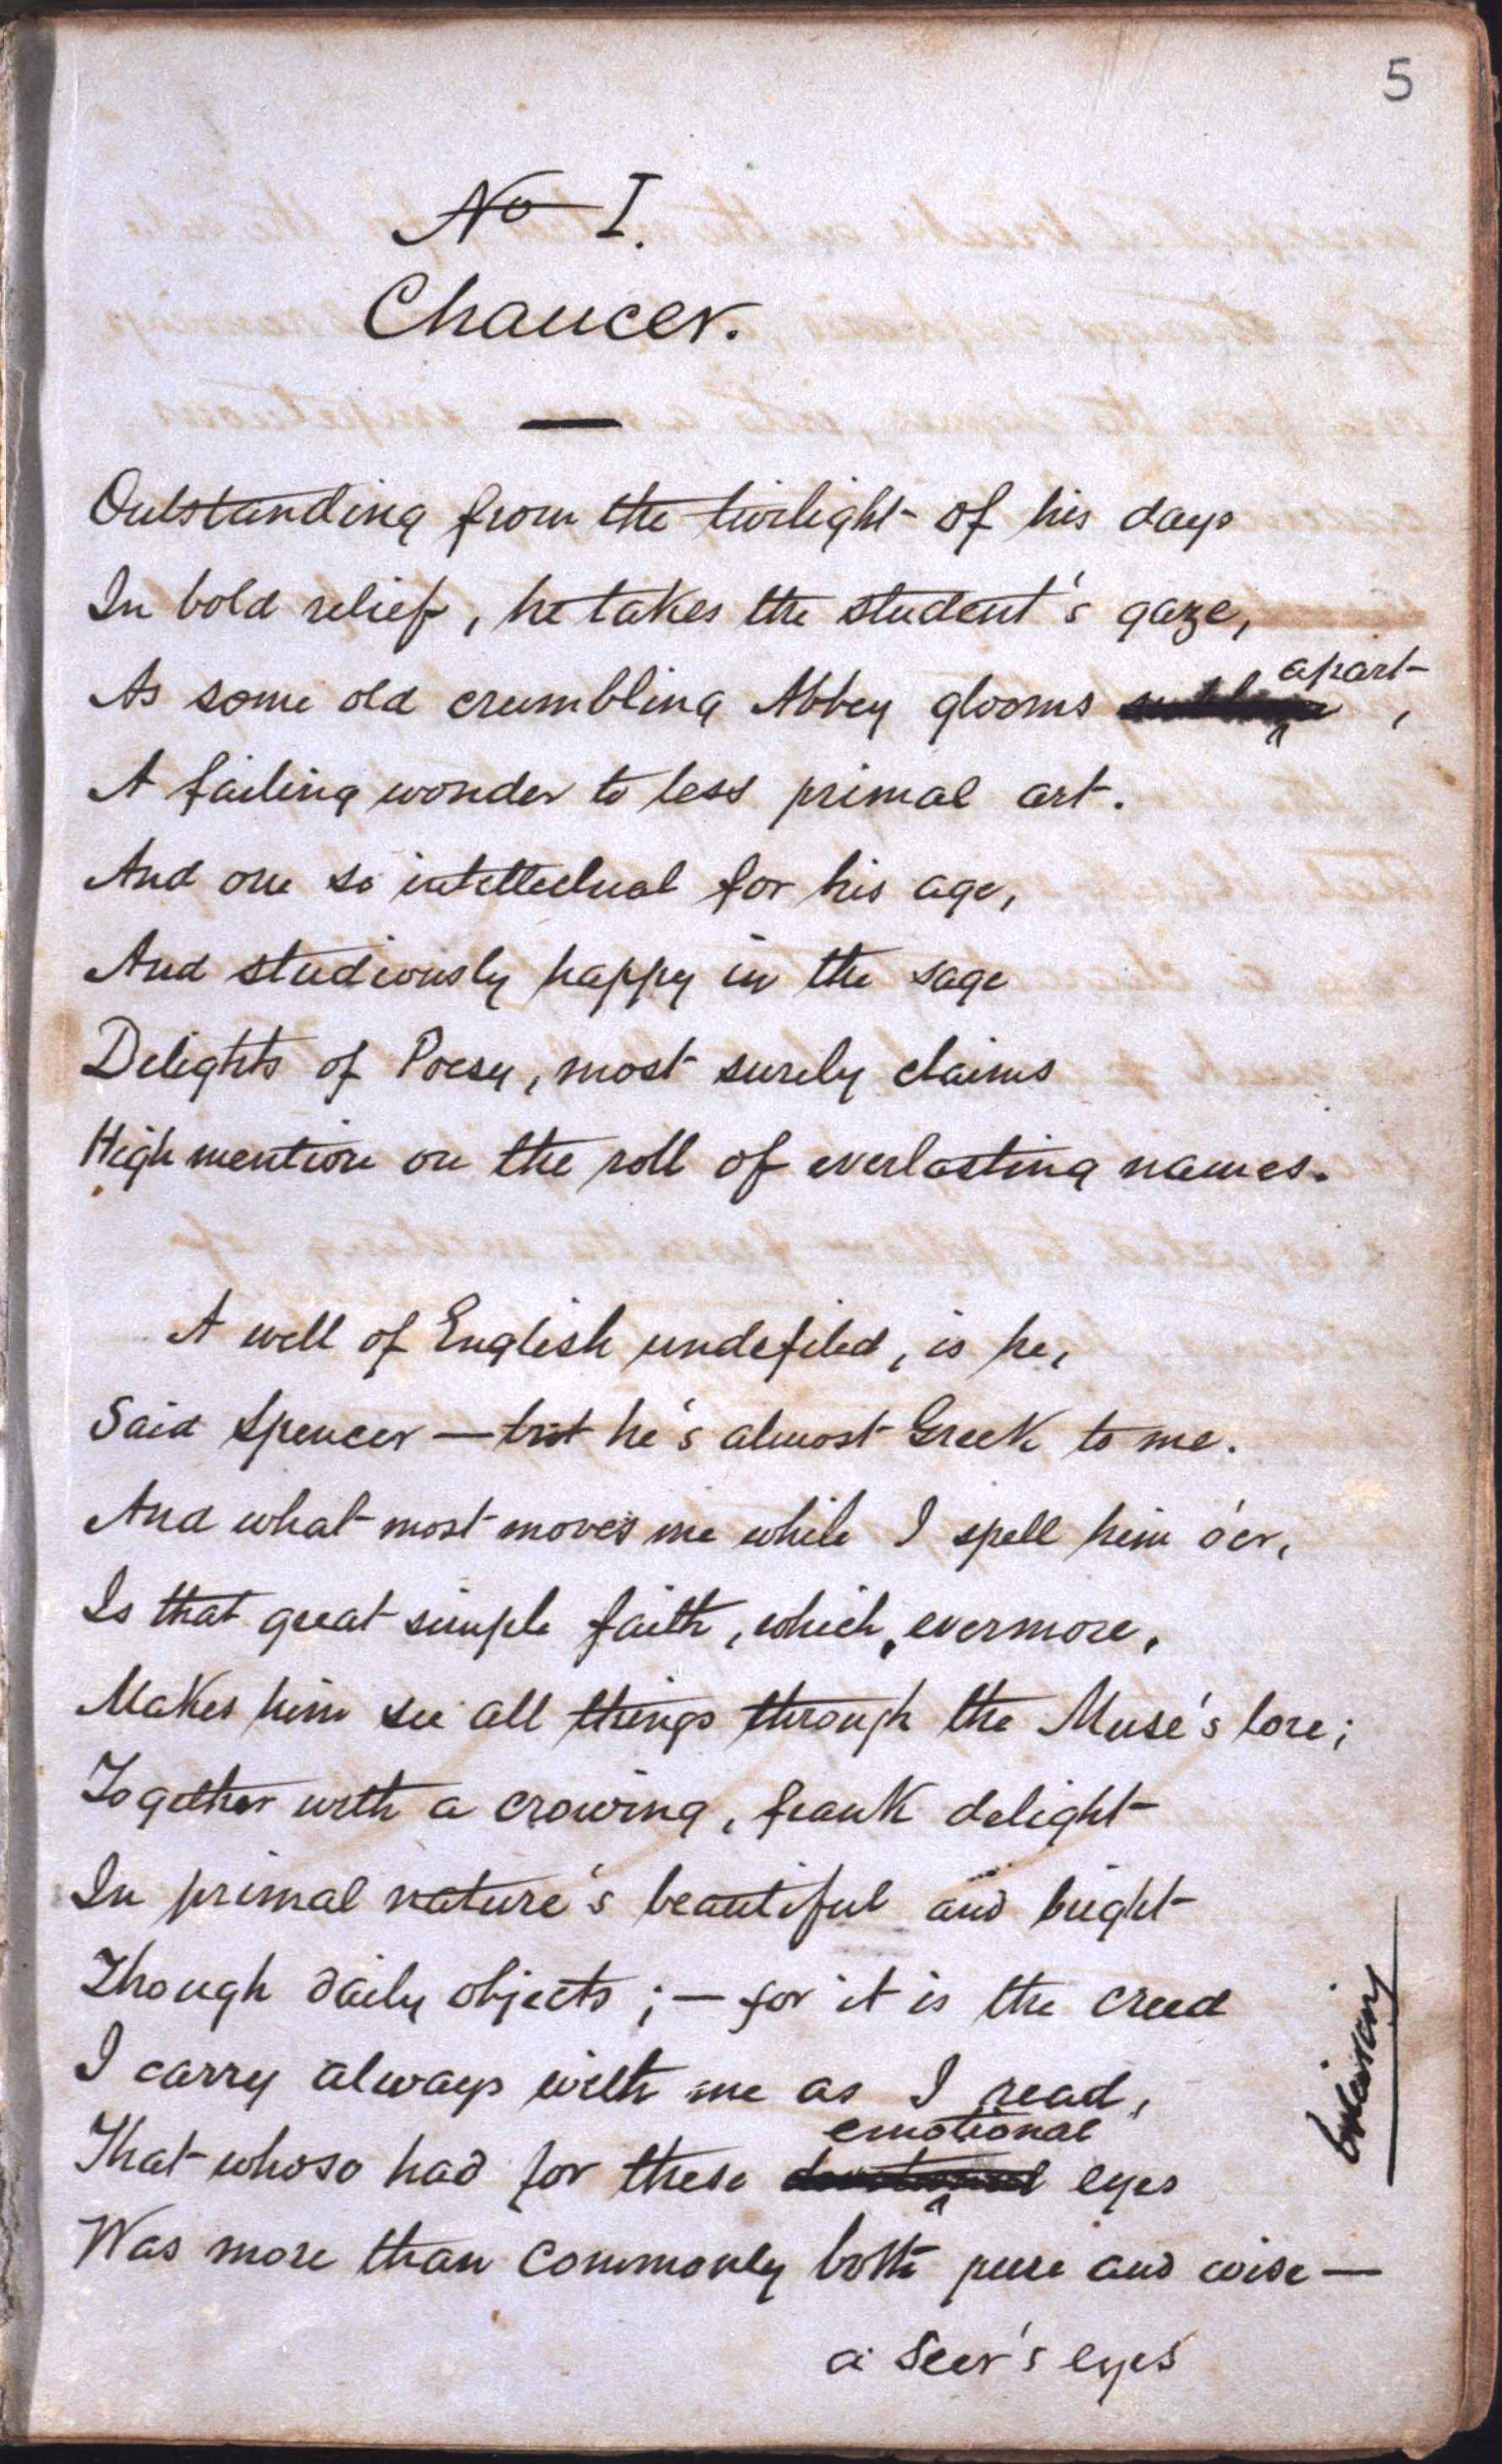 5
No I.
Chaucer.
Outstanding from the twilight of his days
In bold relief, he takes the student's gaze,
As some old crumbling Abbey glooms apart,
A failing wonder to less primal art.
And one so intellectual for his age,
And studiously happy in the sage
Delights of Poesy, most surely claims
High mention on the roll of everlasting names.
A well of English undefiled, is he,
Said Spencer — but he's almost Greek to me.
And what most moves me while I spell him o'er,
Is that great simple faith, which, evermore,
Makes him see all things through the Muse's lore;
Together with a crowing, frank delight
In primal nature's beautiful and bright
Though daily objects; — for it is the creed
I carry always with me as I read,
That whoso had for these emotional eyes
Was more than commonly both pure and wise —
a Seer's eyes